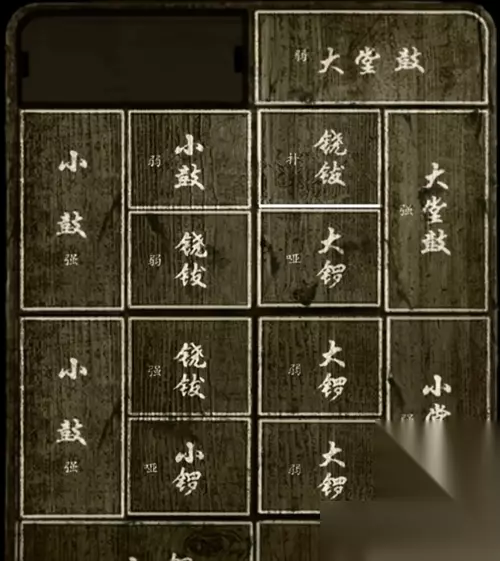 弱 大堂鼓
小鼓 强
弱 小鼓
补 铙钹
强 大堂鼓
弱 铙钹
哑 大锣
小鼓 强
强 铙钹
弱 大锣
小堂
哑 小锣
弱 大锣